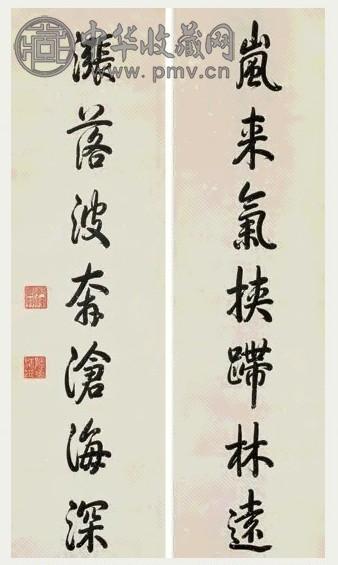 嵐来氣挾蹛林遠
漲落波奔滄海深
中华收藏网
www.pmv.cn